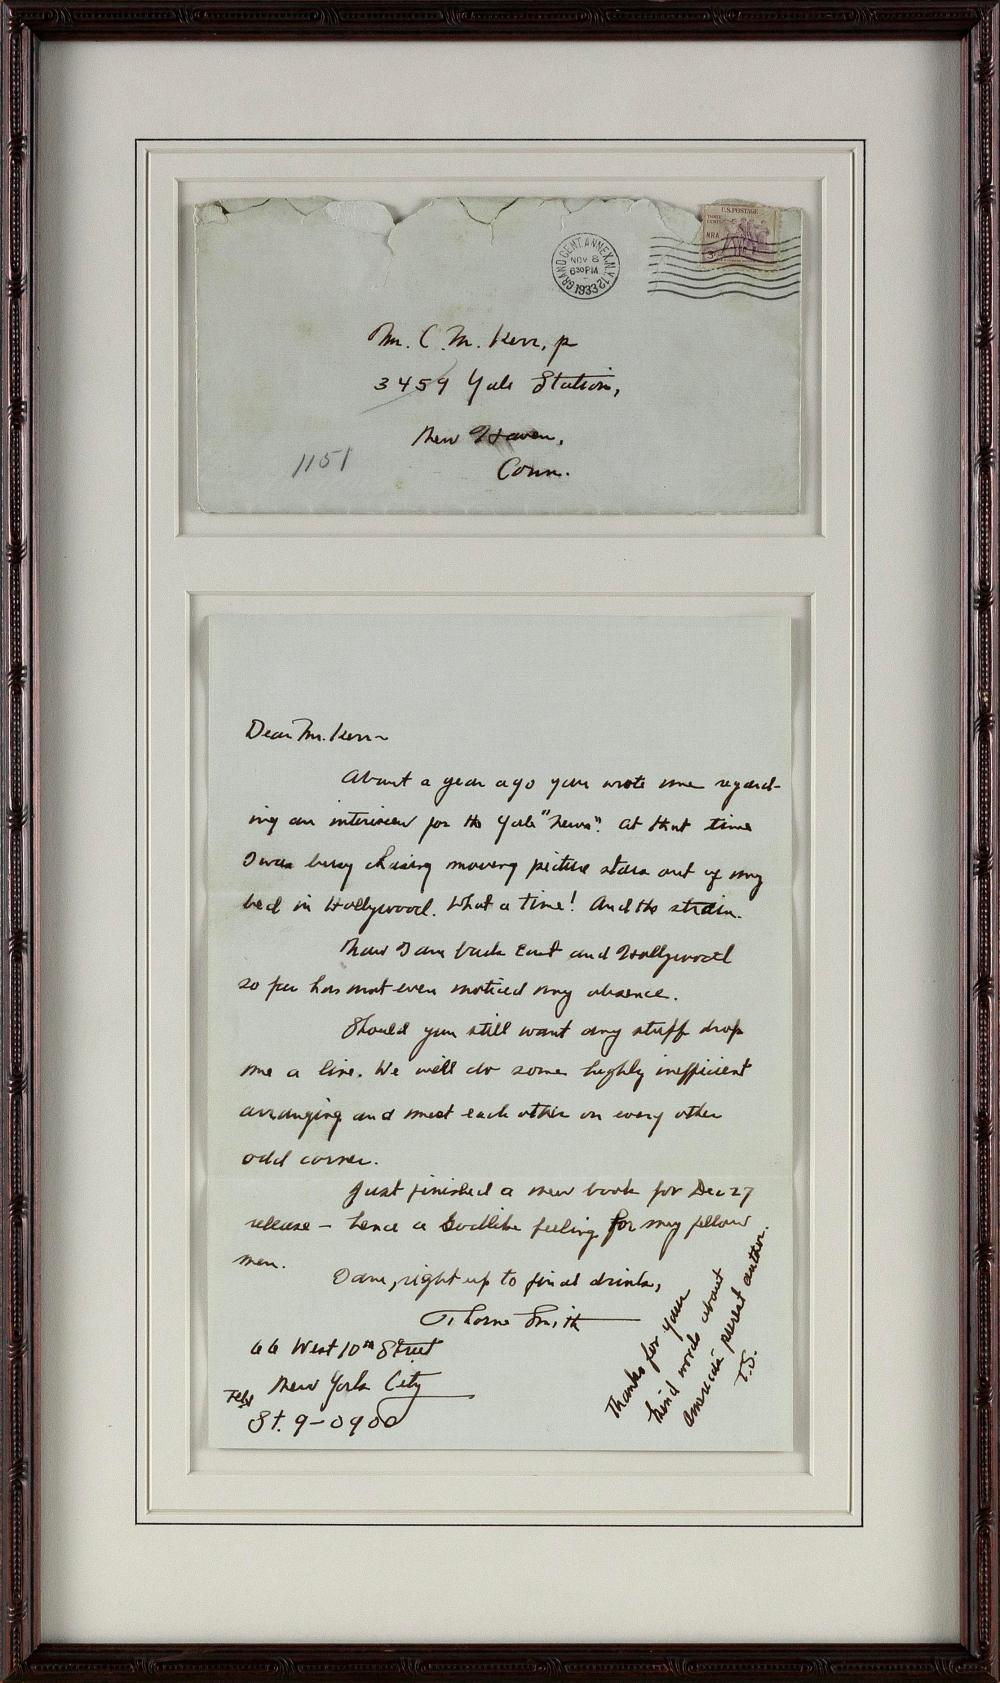 U.S. POSTAGE
THREE CENTS
NRA
3
GRAND CENT. ANNEX, N.Y. 12
NOV 8
6 30 PM
1933
Mr. C. M. Kerr, Jr
3459 Yale Station,
New Haven,
Conn.
1151
Dear Mr. Kerr—
About a year ago you wrote me regard-
ing an interview for the Yale "News". At that time
I was busy chasing moving picture stars out of my
bed in Hollywood. What a time! And the strain.
Now I am back East and Hollywood
so far has not even noticed my absence.
Should you still want any stuff drop
me a line. We will do some highly inefficient
arranging and meet each other on every other
odd corner.
Just finished a new book for Dec 27
release – hence a Godlike feeling for my fellow
men.
I am, right up to final drinks,
Thorne Smith
66 West 10th Street
New York City
Tel
St. 9-0900
Thanks for your
kind words about
America's purest author.
T.S.